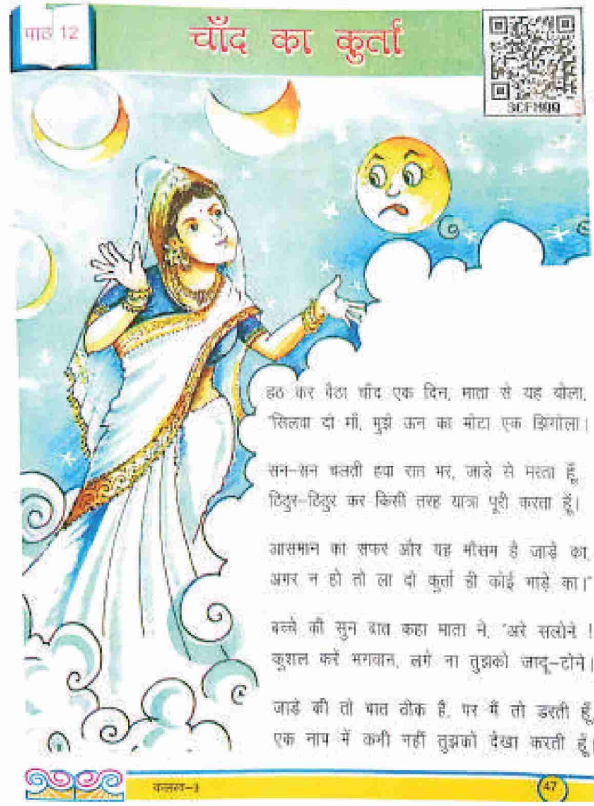 पाठ 12
चाँद का कुर्ता
3CFMQQ
हठ कर बैठा चाँद एक दिन, माता से यह बोला,
"सिलवा दो माँ, मुझे ऊन का मोटा एक झिंगोला।
सन-सन चलती हवा रात भर, जाड़े से मरता हूँ
ठिठुर-ठिठुर कर किसी तरह यात्रा पूरी करता हूँ।
आसमान का सफर और यह मौसम है जाड़े का,
अगर न हो तो ला दो कुर्ता ही कोई भाड़े का।"
बच्चे की सुन बात कहा माता ने, "अरे सलोने !
कुशल करें भगवान, लगे ना तुझको जादू-टोने।
जाड़े की तो बात ठीक है, पर मैं तो डरती हूँ
एक नाप में कभी नहीं तुझको देखा करती हूँ।
कलरव-3
47